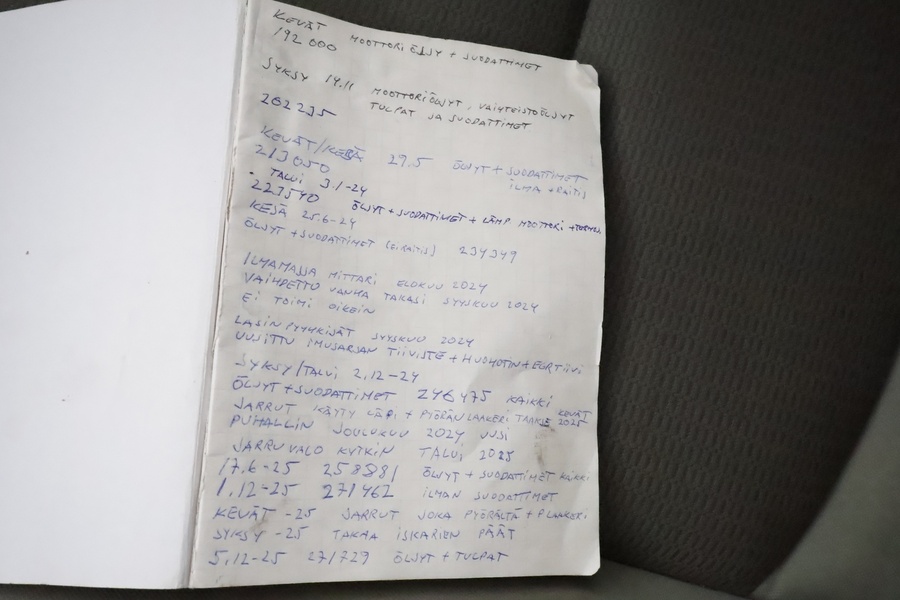 KEVÄT MOOTTORI ÖLJY + SUODATTIMET
192 000
SYKSY 14.11 MOOTTORIÖLJYT, VAIHTEISTOÖLJYT
202235 TULPAT JA SUODATTIMET
KEVÄT/KESÄ 29.5 ÖLJYT + SUODATTIMET
213050 ILMA + RAITIS
- TALVI 3.1-24
223540 ÖLJYT + SUODATTIMET + LÄMP MOOTTORI +
KESÄ 25.6-24
ÖLJYT + SUODATTIMET (EI RAITIS) 234349
ILMAMASSA MITTARI ELOKUU 2024
VAIHDETTU VANHA TAKASI SYYSKUU 2024
EI TOIMI OIKEIN
LASIN PYYHKIJÄT SYYSKUU 2024
UUSITTU IMUSARJAN TIIVISTE + HUOHOTIN + EGR TIIVI
SYKSY/TALVI 2.12-24
ÖLJYT + SUODATTIMET 246475 KAIKKI
JARRUT KÄYTY LÄPI + PYÖRÄN LAAKERI TAAKSE KEVÄT 2025
PUHALLIN JOULUKUU 2024 UUSI
JARRUVALO KYTKIN TALVI 2025
17.6-25 258881 ÖLJYT + SUODATTIMET KAIKKI
1.12-25 271462 ILMAN SUODATTIMET
KEVÄT -25 JARRUT JOKA PYÖRÄLTÄ + P LAAKERI
SYKSY -25 TAKAA ISKARIEN PÄÄT
5.12-25 271729 ÖLJYT + TULPAT